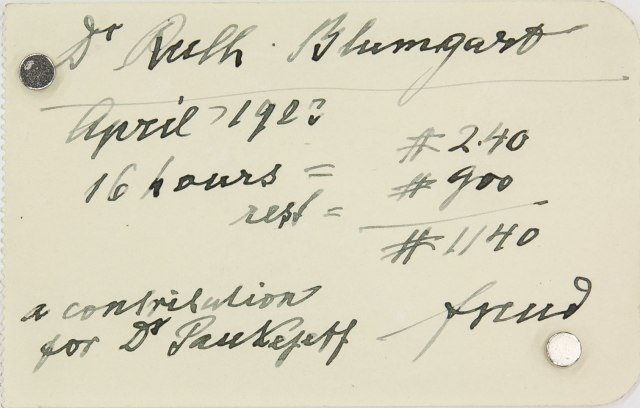 Dr Ruth Blumgart
April
16 hours = # 2.40
rest = # 900
# 1140
a contribution
for Dr Pankejeff
Freud